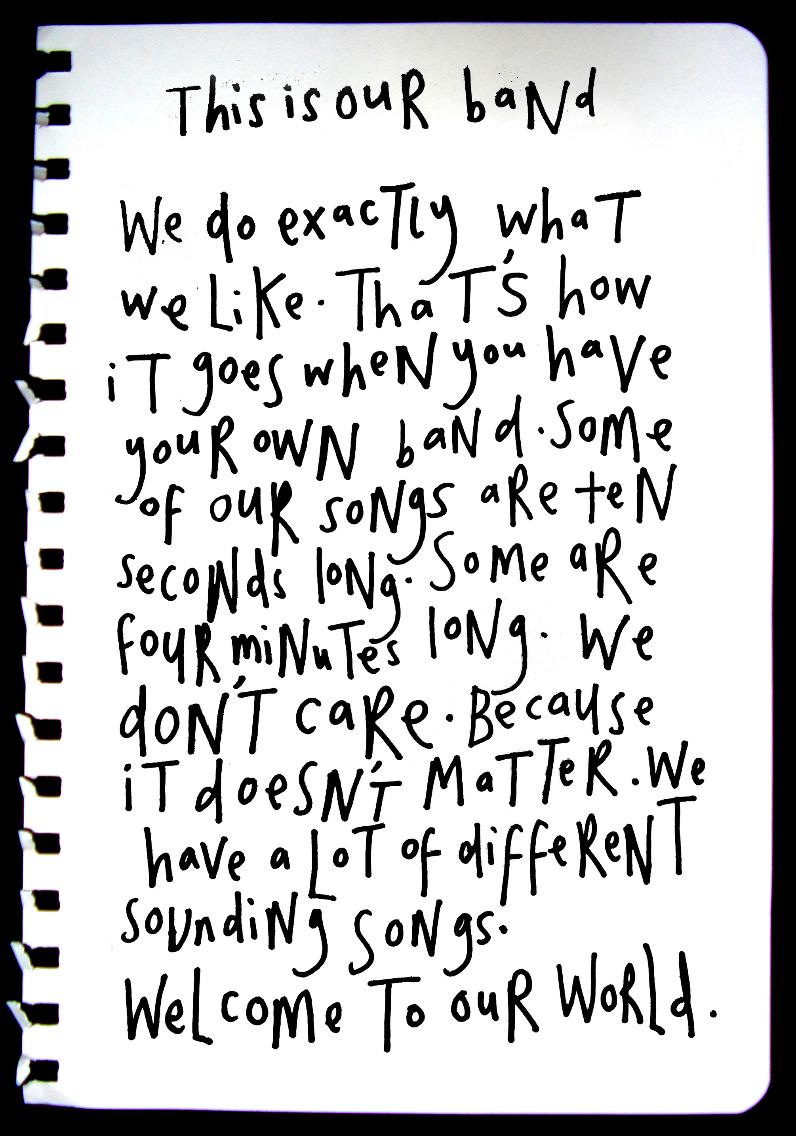 This is ouR baNd
We do exacTly whaT
we LiKe. ThaT'S how
iT goes wheN you haVe
youR owN baNd. Some
of ouR soNgs aRe teN
secoNds loNg. Some aRe
fouR miNuTes loNg. We
doN'T caRe. Because
iT doesN'T MaTTeR. We
haVe a LoT of diffeReNT
souNdiNg SoNgs.
WeLcoMe To ouR WoRld.